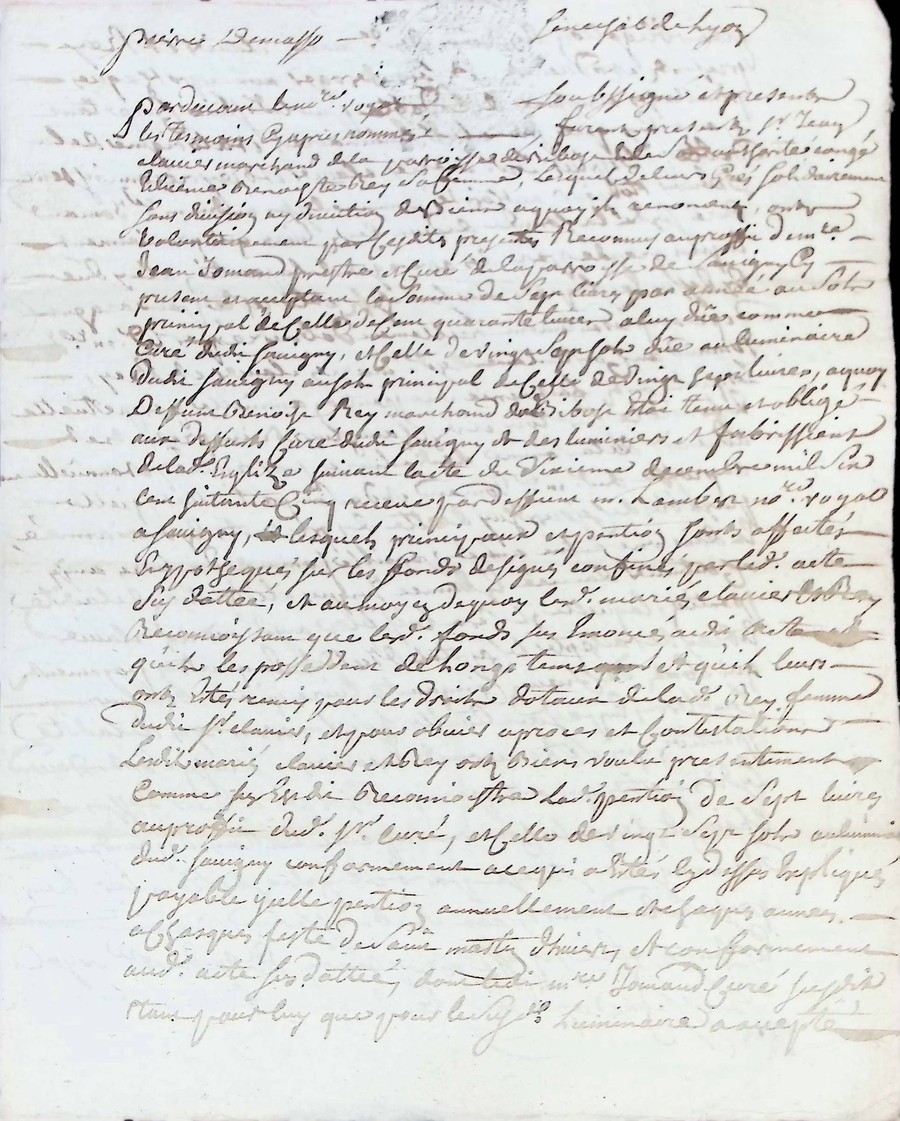 pierre Demasso — Senechal de Lyon
Pardevant le no.re royal soubssigné et presents
Les tesmoins cy apres nommés — furent presents sr Jean
clavier marchand de la parroisse de Ribost et de son authorite congé
Benoiste Rey sa femme, Lesquels de leurs grés solidairement
sans division ny direction de biens a quoy ils renoncent, ont
volontairement par cesdits presentes Reconnus au proffit de m.re
Jean Jomand prestre et curé de la parroisse de Savigny cy
present et acceptant la somme de sept livres par année au sort
principal de celle de cent quarante livres a luy düe comme
curé dudit Savigny, et celle de vingt sept sols düe au luminaire
dudit Savigny au sort principal de celle de vingt sept livres, a quoy
Deffunt Benoist Rey marchand de Ribost Estoit tenu et obligé
aux dessusds curé dudit Savigny et des luminiers et fabrissient
de lad. Esglize suivant lacte du dixieme decembre mil six
cent soixante cinq receue par deffunt m. Lambert no.re royal
a Savigny, lesquels principaux et pention sonts affectés
hyppotheques sur les fonds designés confinés par led. acte
sus datteé, et au moyen de quoy lesd. mariés clavier et Rey
Reconnoissant que lesd. fonds sus Enoncés audit acte
quils les possedent de longs temps et quils leurs
onts Estes remis pour les droits dotaux de lad. Rey femme
dudit sr clavier, et pour obvier a proces et contestations
Lesdits mariés clavier et Rey onts biens voulu presentement
comme sus Est dit Reconnoistre lad. pention de sept livres
au proffit dud. sr curé, et celle de vingt sept sols au luminaire
dud. Savigny conformement a ce qui a Estés cy dessus Expliqués
payable ycelle pention annuellement et chaques années —
a chasques feste de saint martin d'hivers, et conformement
aud. acte sus datteé, dont ledit m.re Jomand curé susdit
tant pour luy que pour le susd. Luminaire a accepté